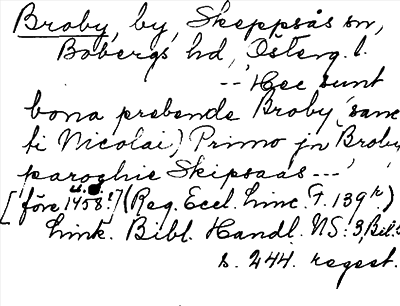 Broby, by, Skeppsås sn,
Bobergs hd, Österg. l.
--"Hec sunt
bona prebende Broby (sanc
ti Nicolai) Primo jn Broby
parochie Skipsaas ---"
[före 1458?] (Reg. Eccl. Linc. F. 139 r.)
Link. Bibl. Handl. NS: 3, Bil.
s. 244. regest.